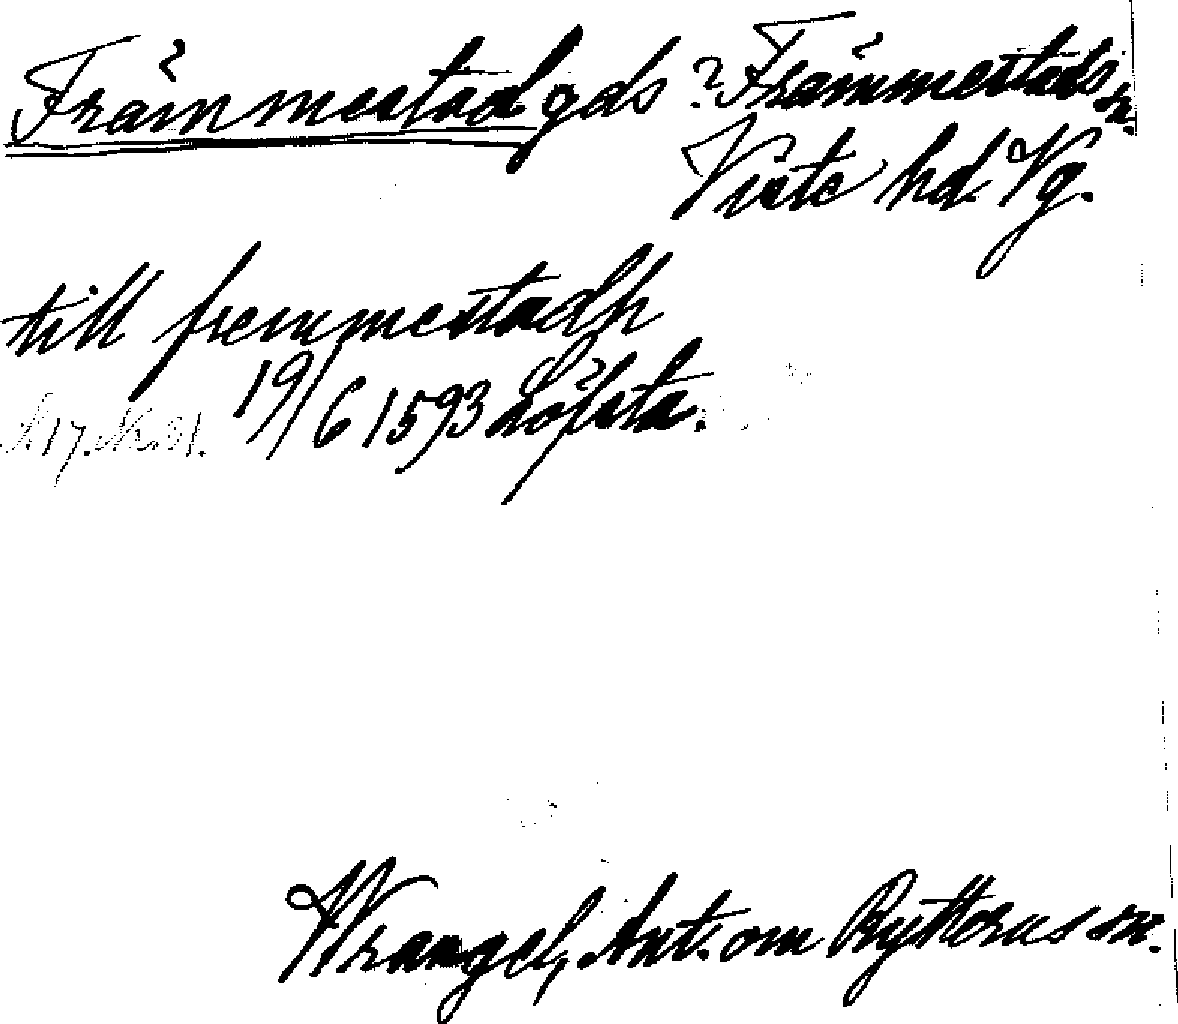 Främmestad gds ? Främmestads
sn.
Viste hd. Vg.
till fremmestadh
19/6 1593 Löfsta.
Wrangel, Ant. om Ryttorus sn.